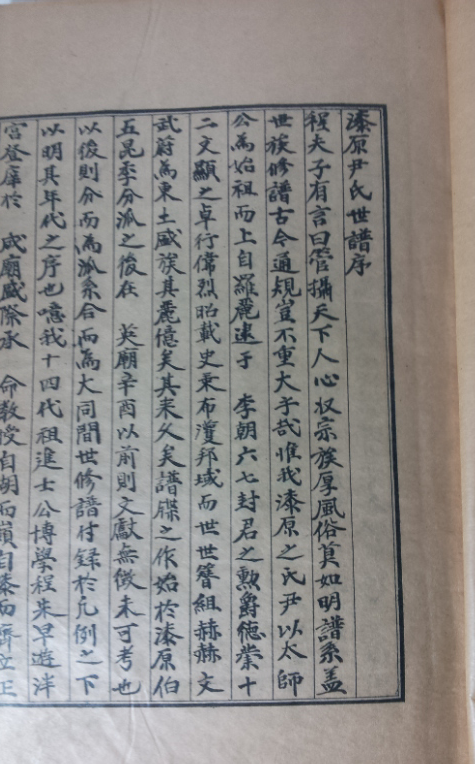 漆原尹氏世譜序
程夫子有言曰管攝天下人心收宗族厚風俗莫如明譜系盖
世族修譜古今通規豈不重大乎哉惟我漆原之氏尹以太師
公為始祖而上自羅麗逮于 李朝六七封君之勲爵德業十
二文顯之卓行偉烈昭載史乘布濩邦域而世世簪組赫赫文
武蔚為東土盛族其麗億矣其来久矣譜牒之作始於漆原伯
五昆季分派之後在 英廟辛酉以前則文獻無徵未可考也
以後則分而為派系合而為大同間世修譜付録於凡例之下
以明其年代之序也噫我十四代祖進士公博學程朱早遊泮
宮登庠於 成廟盛際承 命教授自胡而嶺自漆而齊立正